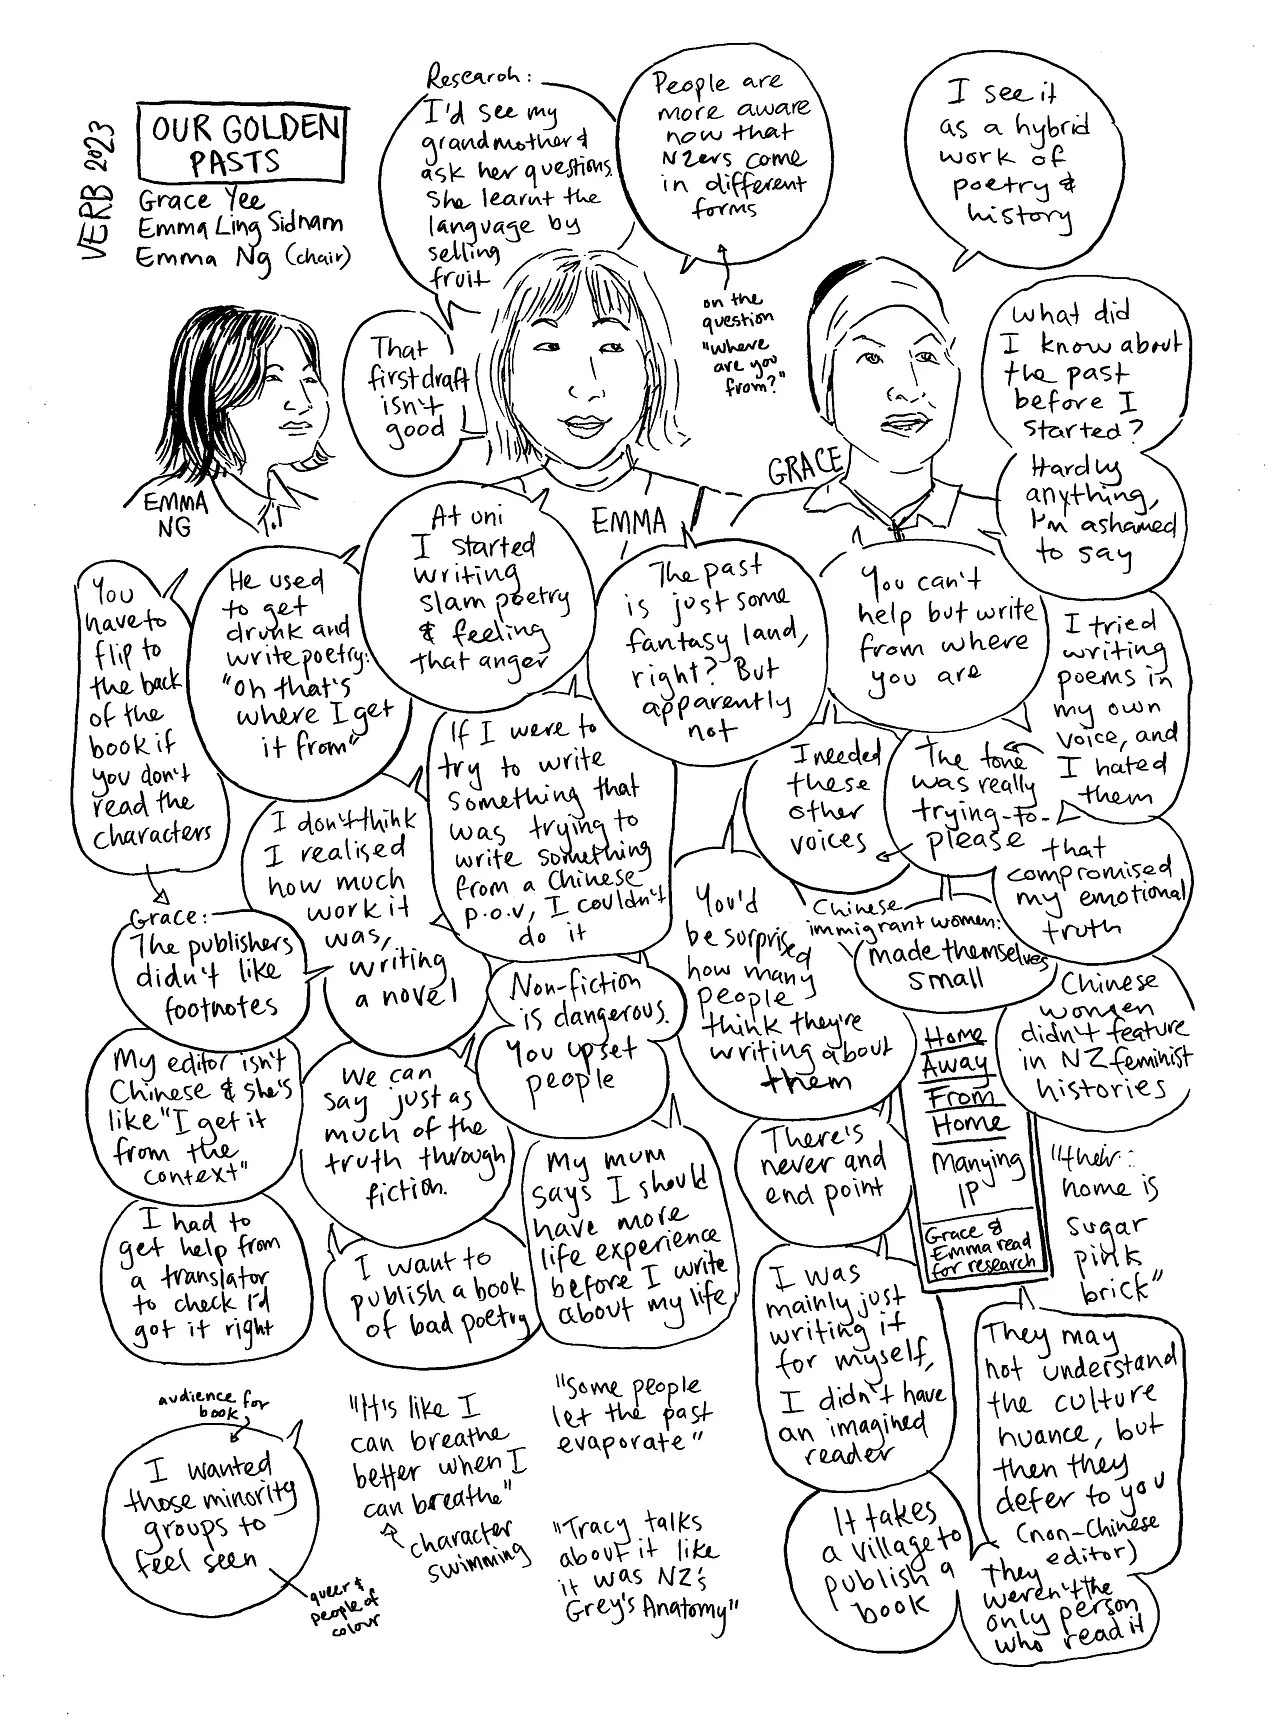 VERB 2023
OUR GOLDEN
PASTS
Grace Yee
Emma Ling Sidnam
Emma Ng (chair)
Research:
I'd see my
grandmother &
ask her questions.
She learnt the
language by
selling
fruit
People are
more aware
now that
NZers come
in different
forms
on the
question
"where
are you
from?"
I see it
as a hybrid
work of
poetry &
history
That
first draft
isn't
good
What did
I know about
the past
before I
started?
Hardly
anything,
I'm ashamed
to say
EMMA
NG
EMMA
GRACE
You
have to
flip to
the back
of the
book if
you don't
read the
characters
He used
to get
drunk and
write poetry:
"Oh that's
where I get
it from"
At uni
I started
writing
slam poetry
& feeling
that anger
The past
is just some
fantasy land,
right? But
apparently
not
You can't
help but write
from where
you are
I tried
writing
poems in
my own
voice, and
I hated
them
The tone
was really
trying-to-
please
that
compromised
my emotional
truth
I needed
these
other
voices
If I were to
try to write
something that
was trying to
write something
from a Chinese
p.o.v, I couldn't
do it
I don't think
I realised
how much
work it
was,
writing
a novel
Grace:
The publishers
didn't like
footnotes
Non-fiction
is dangerous.
You upset
people
You'd
be surprised
how many
people
think they're
writing about
them
Chinese
immigrant women:
made themselves
small
Chinese
women
didn't feature
in NZ feminist
histories
My editor isn't
Chinese & she's
like "I get it
from the
context"
We can
say just as
much of the
truth through
fiction.
My mum
says I should
have more
life experience
before I write
about my life
There's
never and
end point
Home
Away
From
Home
Manying
IP
Grace &
Emma read
for research
"their:
home is
sugar
pink
brick"
I had to
get help from
a translator
to check I'd
got it right
I want to
publish a book
of bad poetry
I was
mainly just
writing it
for myself,
I didn't have
an imagined
reader
They may
not understand
the culture
nuance, but
then they
defer to you
(non-Chinese
editor)
They
weren't the
only person
who read it
It takes
a village to
publish a
book
audience for
book
I wanted
those minority
groups to
feel seen
queer &
people of
colour
"It's like I
can breathe
better when I
can breathe"
character
swimming
"Some people
let the past
evaporate"
"Tracy talks
about it like
it was NZ's
Grey's Anatomy"